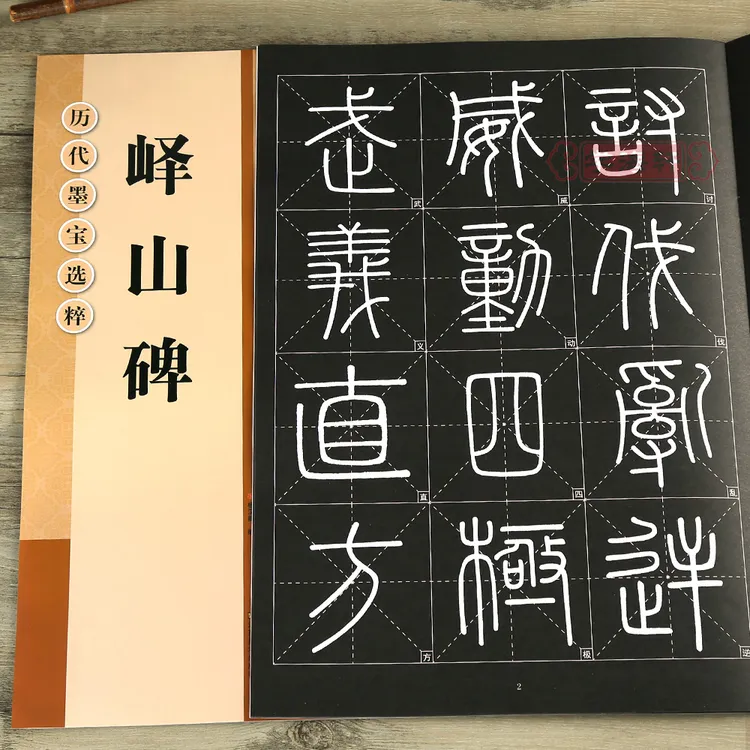 历代墨宝选粹
峄山碑
討伐亂逆
威動四極
武義直方
讨
伐
乱
逆
威
动
四
极
武
义
直
方
2